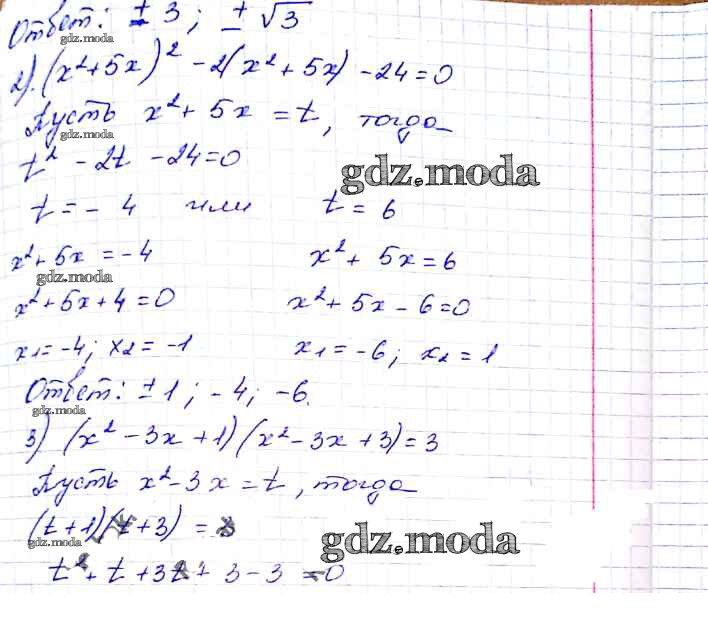 Ответ: ± 3; ± √3
gdz.moda
2). (x² + 5x)² - 2(x² + 5x) - 24 = 0
Пусть x² + 5x = t, тогда
gdz.moda
t² - 2t - 24 = 0
gdz.moda
t = - 4 или t = 6
x² + 5x = -4 x² + 5x = 6
gdz.moda
x² + 5x + 4 = 0 x² + 5x - 6 = 0
x1 = -4; x2 = -1 x1 = -6; x2 = 1
Ответ: ± 1; -4; -6.
gdz.moda
3) (x² - 3x + 1)(x² - 3x + 3) = 3
Пусть x² - 3x = t, тогда
(t + 1)(t + 3) = 3
gdz.moda
gdz.moda
t² + t + 3t + 3 - 3 = 0